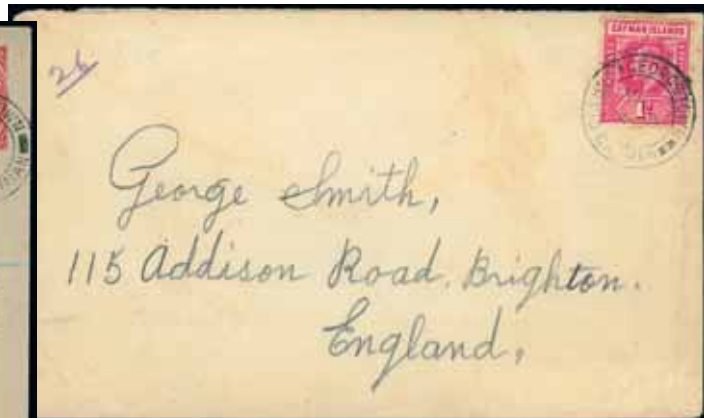 26
CAYMAN ISLANDS
1d
George Smith,
115 Addison Road. Brighton.
England,